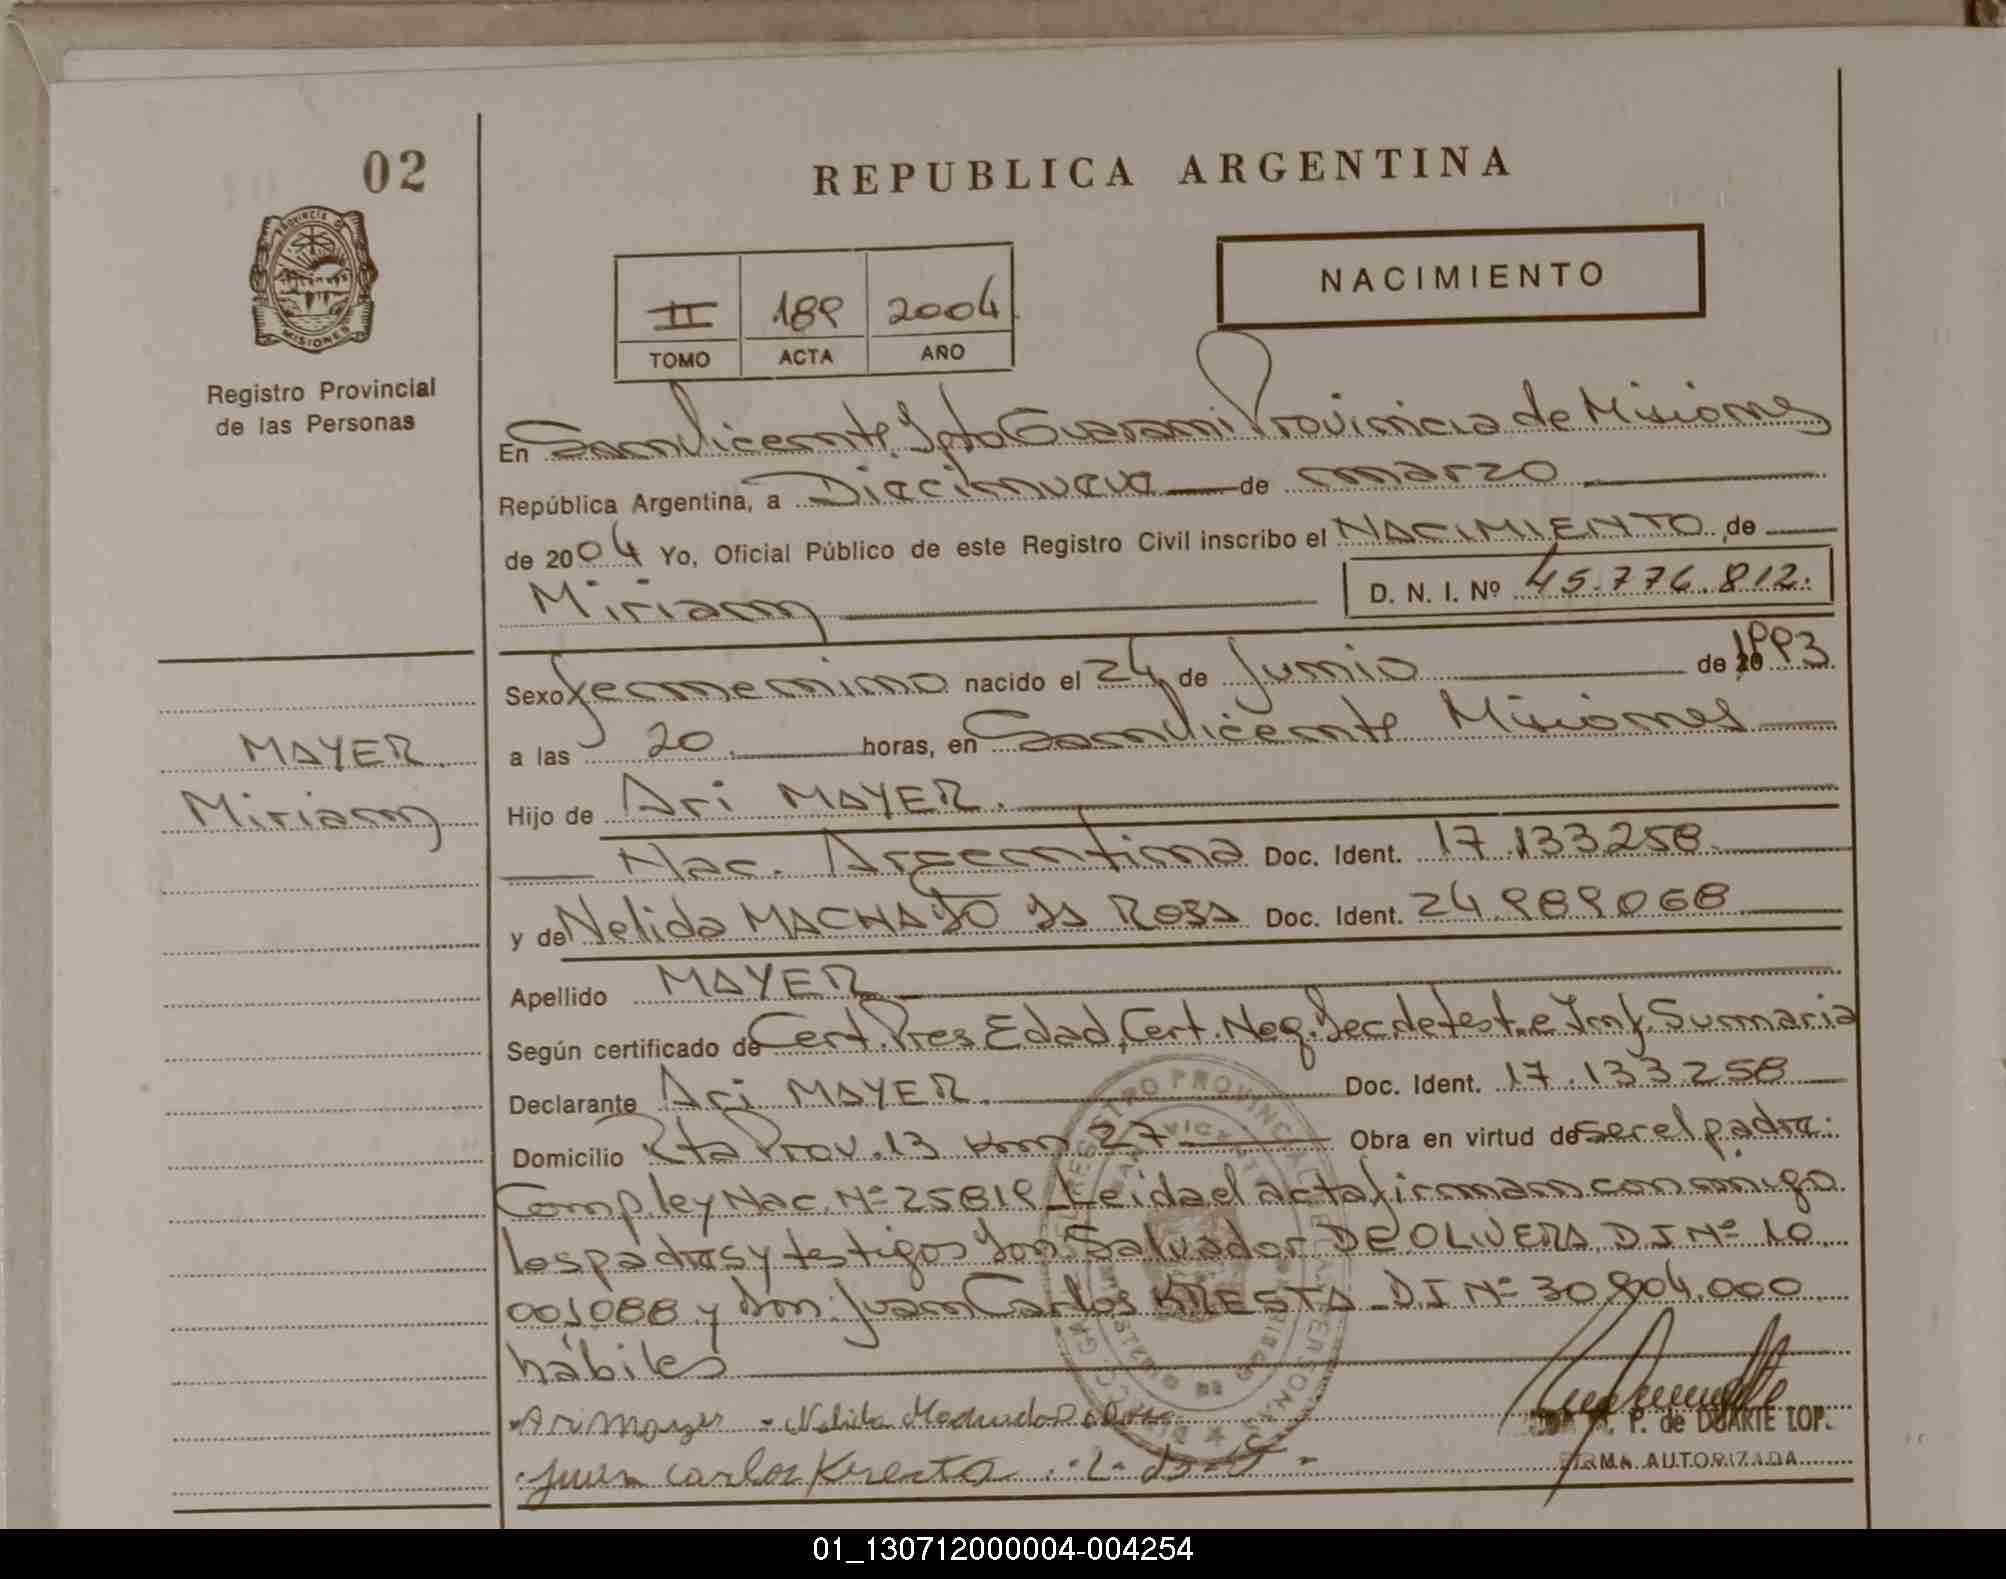 02
REPUBLICA ARGENTINA
PROVINCIA DE
MISIONES
Registro Provincial
de las Personas
NACIMIENTO
II 189 2004
TOMO ACTA AÑO
En San Vicente Dpto Guarani Provincia de Misiones
República Argentina, a Diecinueve de marzo
de 2004 Yo, Oficial Público de este Registro Civil inscribo el NACIMIENTO, de
Miriam D. N. I. Nº 45.776.812.
Sexo femenino nacido el 24 de Junio de 1993
a las 20 horas, en San Vicente Misiones
MAYER
Miriam
Hijo de Ari MAYER.
Nac. Argentina Doc. Ident. 17.133258
y de Nelida MACHADO DA ROSA Doc. Ident. 24.989068
Apellido MAYER
Según certificado de Cert. Pres Edad, Cert. Neg. Dec de test. e Inf. Sumaria
Declarante Ari MAYER Doc. Ident. 17.133258
Domicilio Rta Prov. 13 Km 27 Obra en virtud de ser el padre.
Comp. ley Nac. Nº 25819 Leida el acta firman conmigo
los padres y testigos Don Salvador DE OLIVERA, DI Nº 10
001088 y don Juan Carlos KRESTA DI Nº 30.904.000
hábiles
Ari Mayer Nelida Machado
Juan Carlos Kresta
P. de DUARTE LOP.
FIRMA AUTORIZADA
REGISTRO PROVINCIAL DE LAS PERSONAS
01_130712000004-004254